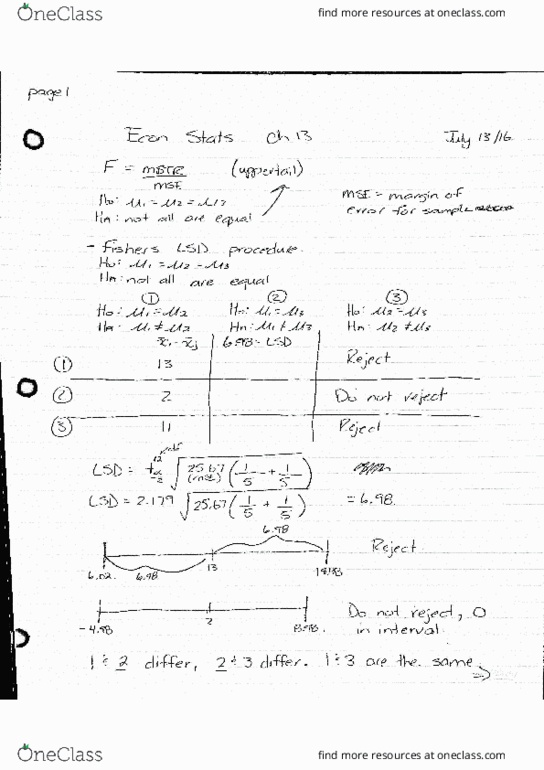 OneClass find more resources at oneclass.com
page 1
Econ Stats Ch 13 July 13/16
F = MSTR/MSE (uppertail)
MSE = margin of error for sample
H0: μ1 = μ2 = μ3
Ha: not all are equal
- Fishers LSD procedure.
H0: μ1 = μ2 = μ3
Ha: not all are equal
① ② ③
H0: μ1 = μ2 H0: μ1 = μ3 H0: μ2 = μ3
Ha: μ1 ≠ μ2 Ha: μ1 ≠ μ3 Ha: μ2 ≠ μ3
x̄i - x̄j 6.98 = LSD
① 13 Reject
② 2 Do not reject
③ 11 Reject
LSD = t α/2 √25.67 (MSE) (1/5 + 1/5)
LSD = 2.179 √25.67 (1/5 + 1/5) = 6.98
6.98
Reject
6.02 6.98 13
Do not reject, 0
-4.98 2 8.98 in interval.
1 & 2 differ, 2 & 3 differ. 1 & 3 are the same.
OneClass find more resources at oneclass.com